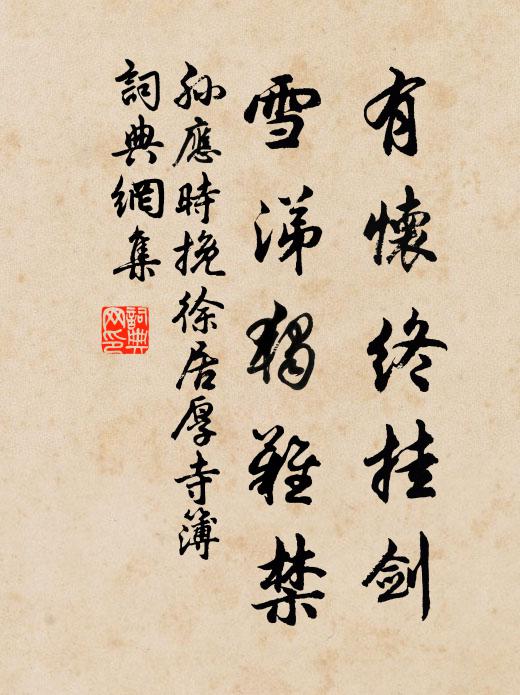 有懷終挂劍
雪涕獨難禁
孫應時挽徐居厚寺簿
詞典網集
詞典網印